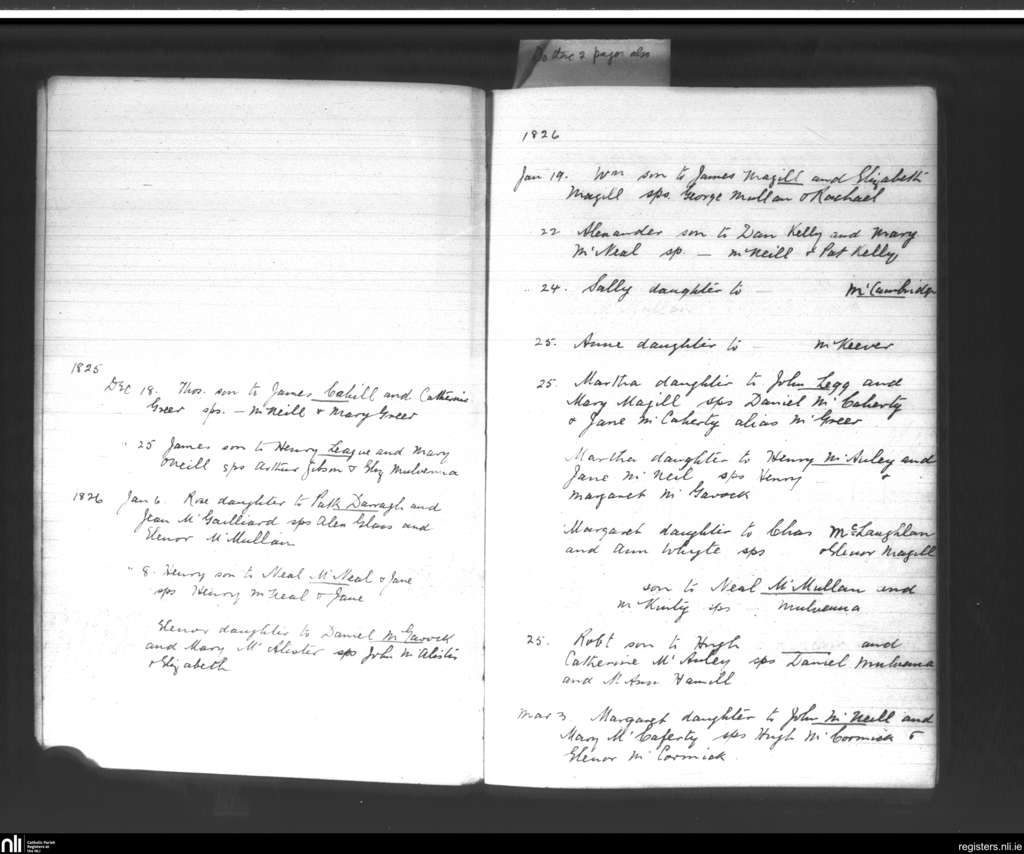 Do these 2 pages also
1825
Dec 18. Thos. son to James Cahill and Catherine
Greer sps. — McNeill & Mary Greer
" 25 James son to Henry League and Mary
O'Neill sps Arthur Gibson & Eliz Mulvenna
1826 Jan 6 Rose daughter to Patk Darragh and
Jean McGailliard sps Alex Glass and
Elenor McMullan
" 8. Henry son to Neal McNeal & Jane
sps Henry McNeal & Jane
Elenor daughter to Daniel McGavock
and Mary McAlister sps John McAlister
& Elizabeth
1826
Jan 19. Wm son to James Magill and Elizabeth
Magill sps. George Mullan & Rachael
22 Alexander son to Dan Kelly and Mary
McNeal sp. — McNeill & Pat Kelly
" 24. Sally daughter to — McCambridge
25. Anne daughter to — McKeever
25. Martha daughter to John Legg and
Mary Magill sps Daniel McCaherty
& Jane McCaherty alias McGreer
Martha daughter to Henry McAuley and
Jane McNeil sps Henry &
Margaret McGavock
Margaret daughter to Chas McLaughlan
and Ann Whyte sps & Elenor Magill
son to Neal McMullan and
McKinty sps Mulvenna
25. Robt son to Hugh and
Catherine McAuley sps Daniel Mulvenna
and Ann Hamill
Mar 3 Margaret daughter to John McNeill and
Mary McCaferty sps Hugh McCormick &
Elenor McCormick
nli Catholic Parish
Registers at
the NLI
registers.nli.ie